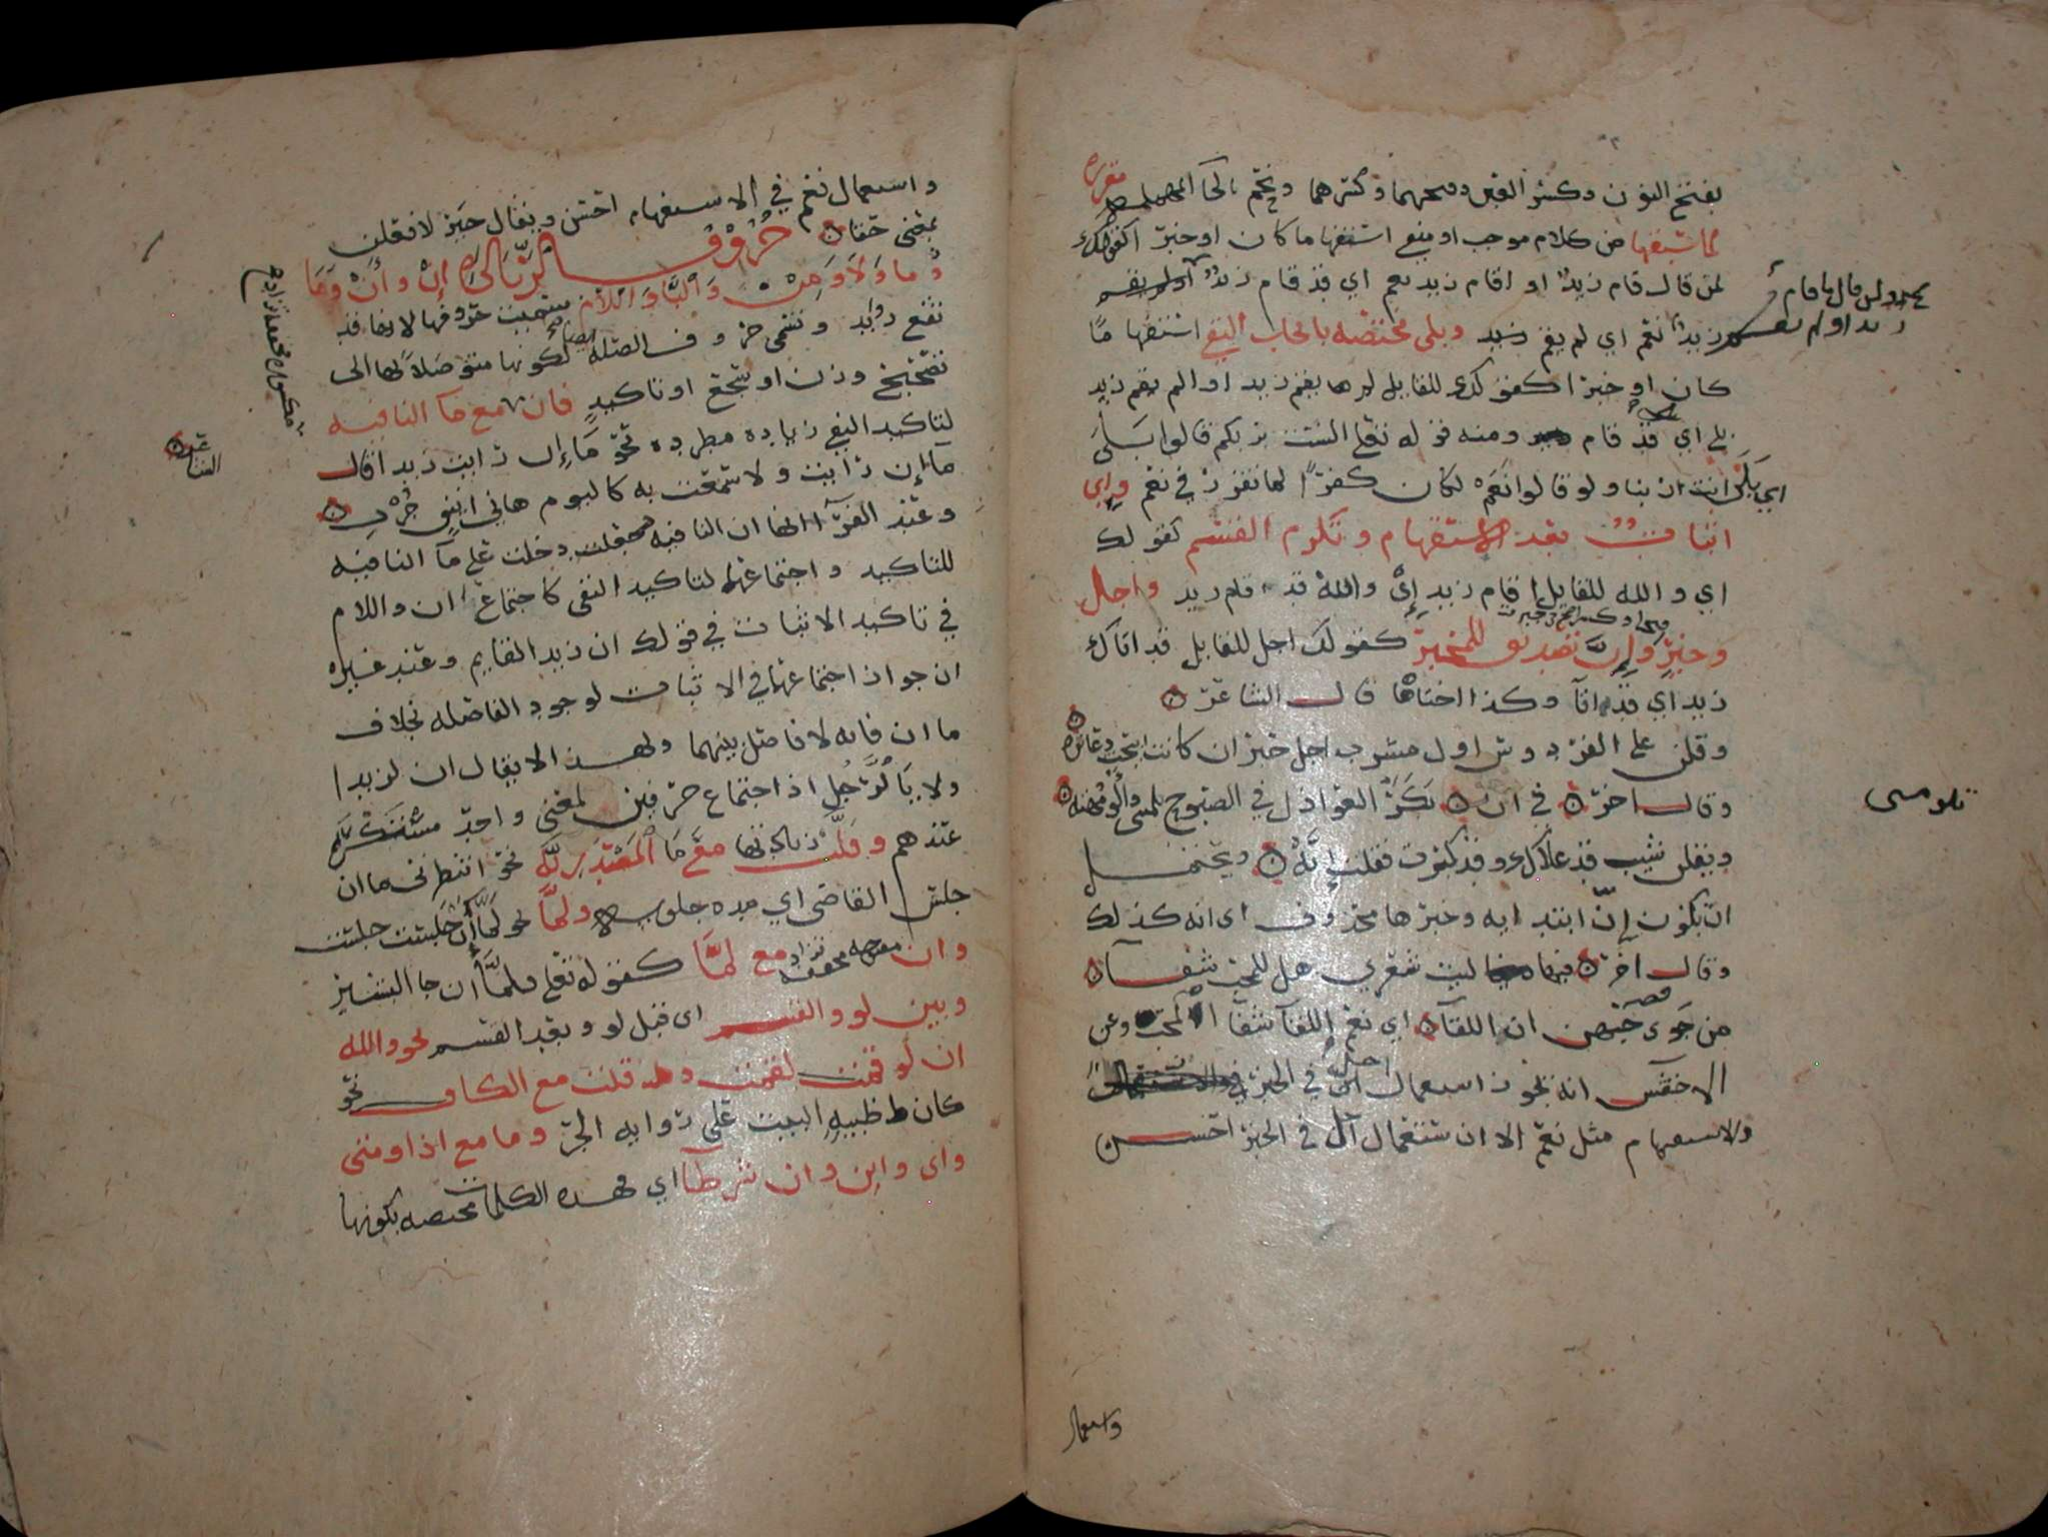 بفتح النون وكسر العين وفتحهما وكسرهما ونحم بالحا المهملة مقررة
لما سبقها من كلام موجب او منفي استفهاما كان او خبرا كقولك
لمن قال قام زيد او اقام زيد نعم اي قد قام زيد
زيد نعم اي لم يقم زيد وبلى مختصه بايجاب النفي استفهاما
كان او خبرا كقولك للقايل لم يقم زيد او الم يقم زيد
بلى اي قد قام ومنه قوله تعلى الست بربكم قالوا بلى
اي بلى انت ربنا ولو قالوا نعم لكان كفرا لما تقرر في نعم واي
اثبات بعد الاستفهام وتلزم القسم كقولك
اي والله للقايل اقام زيد إي والله قد قام زيد واجل
وجير وإن تصديق للمخبر كقولك اجل للقايل قد اتاك
زيد اي قد اتا وكذا اختاها قال الشاعر
وقلن على الفردوس اول مشرب اجل جير ان كانت ابيحت دعاثره
وقال اخر في ان بكر العواذل في الصبوح يلمنني والومهنه
ويقلن شيب قد علاك وقد كبرت فقلت إنه ويحتمل
ان يكون إن ابتدائيه وخبرها محذوف اي انه كذلك
وقال اخر ليت شعري هل للمحب شفآ
من جوى حبهن ان اللقآ اي نعم اللقآ شفآ المحب وعن
الاخفش انه يجوز استعمال اجل في الخبر
والاستفهام مثل نعم الا ان استعمال اجل في الخبر احسن
تلومنى
واستعمال
واستعمال نعم في الاستفهام احسن ويقال جير لافعلن
بمعنى حقا حروف الزيادة إن وأن وما
ولا ومن والبا واللام سميت حروفها لانها قد
تقع زوايد وتسمى حروف الصله ايضا لكونها متوصلا بها الى
تصحيح وزن او سجع او تاكيد فان مع ما النافيه
لتاكيد النفي زياده مطرده نحو ما إن رايت زيدا قال
ما إن رايت ولا سمعت به كاليوم هاني اينق جرب
وعند الفرآ انها ان النافيه دخلت على ما النافيه
للتاكيد واجتماعهما لتاكيد النفي كاجتماع ان واللام
في تاكيد الاثبات في قولك ان زيدا لقايم وعند غيره
ان جواز اجتماعهما في الاثبات لوجود الفاصله بخلاف
ما ان فانه لا فاصل بينهما ولهذا لا يقال ان لزيدا
ولا يا لرجل اذ اجتماع حرفين لمعنى واحد مستنكر
عندهم وقلت زيادتها مع ما المصدريه نحو انتظرني ما ان
جلس القاضي اي مده جلوسه ولما نحو لما إن جلست جلست
وان مع لما كقوله تعلى فلما أن جا البشير
وبين لو والقسم اي قبل لو وبعد القسم نحو والله
ان لو قمت لقمت وقلت مع الكاف نحو
كان ظبيةٍ البيت على روايه الجر وما مع اذا ومتى
واي واين وان شرطا اي فهذه الكلمات مختصه بكونها
الشاعر